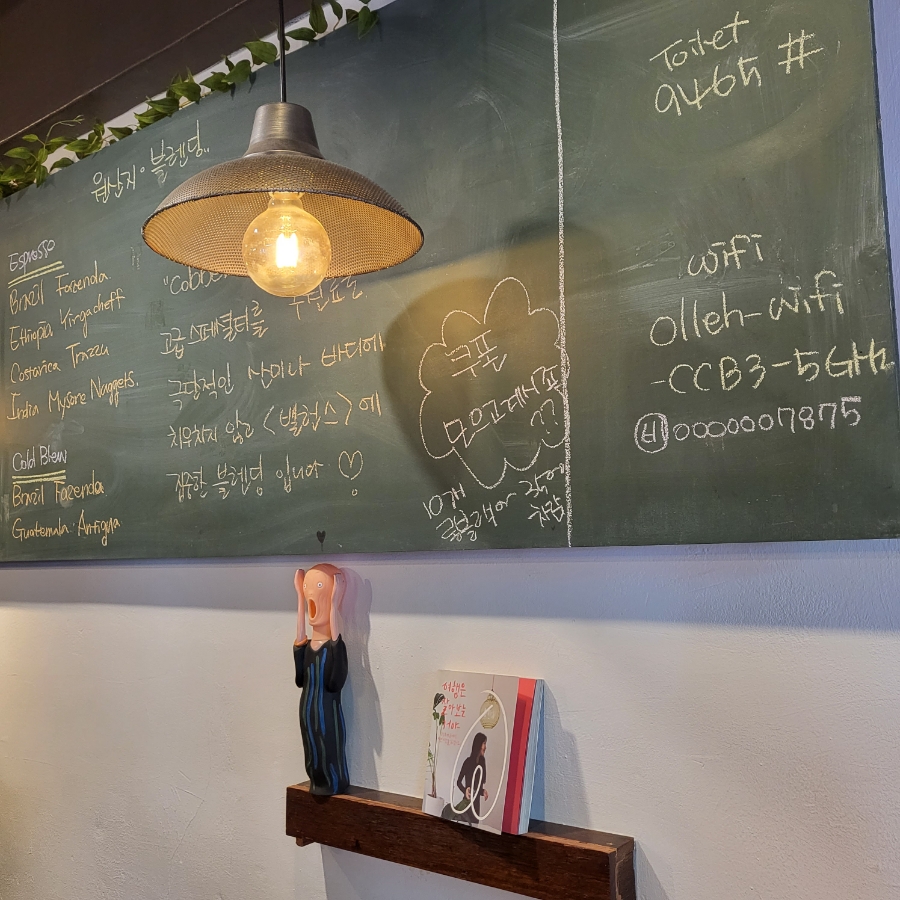 원산지 · 블렌딩..
Espresso
Brazil Fazenda
Ethiopia Yirgacheff
Costarica Trazzu
India Mysore Nuggets.
Cold Blew
Brazil Fazenda
Guatemala Antigua
고급 스페셜티를
극단적인 산미나 바디에
치우치지 않고 <밸런스>에
집중한 블렌딩 입니다 ♡
쿠폰
모으고 계시죠
??
10개
차감
Toilet
9465 #
wifi
olleh-wifi
-CCB3-5GHz
비 0000007875
여행은